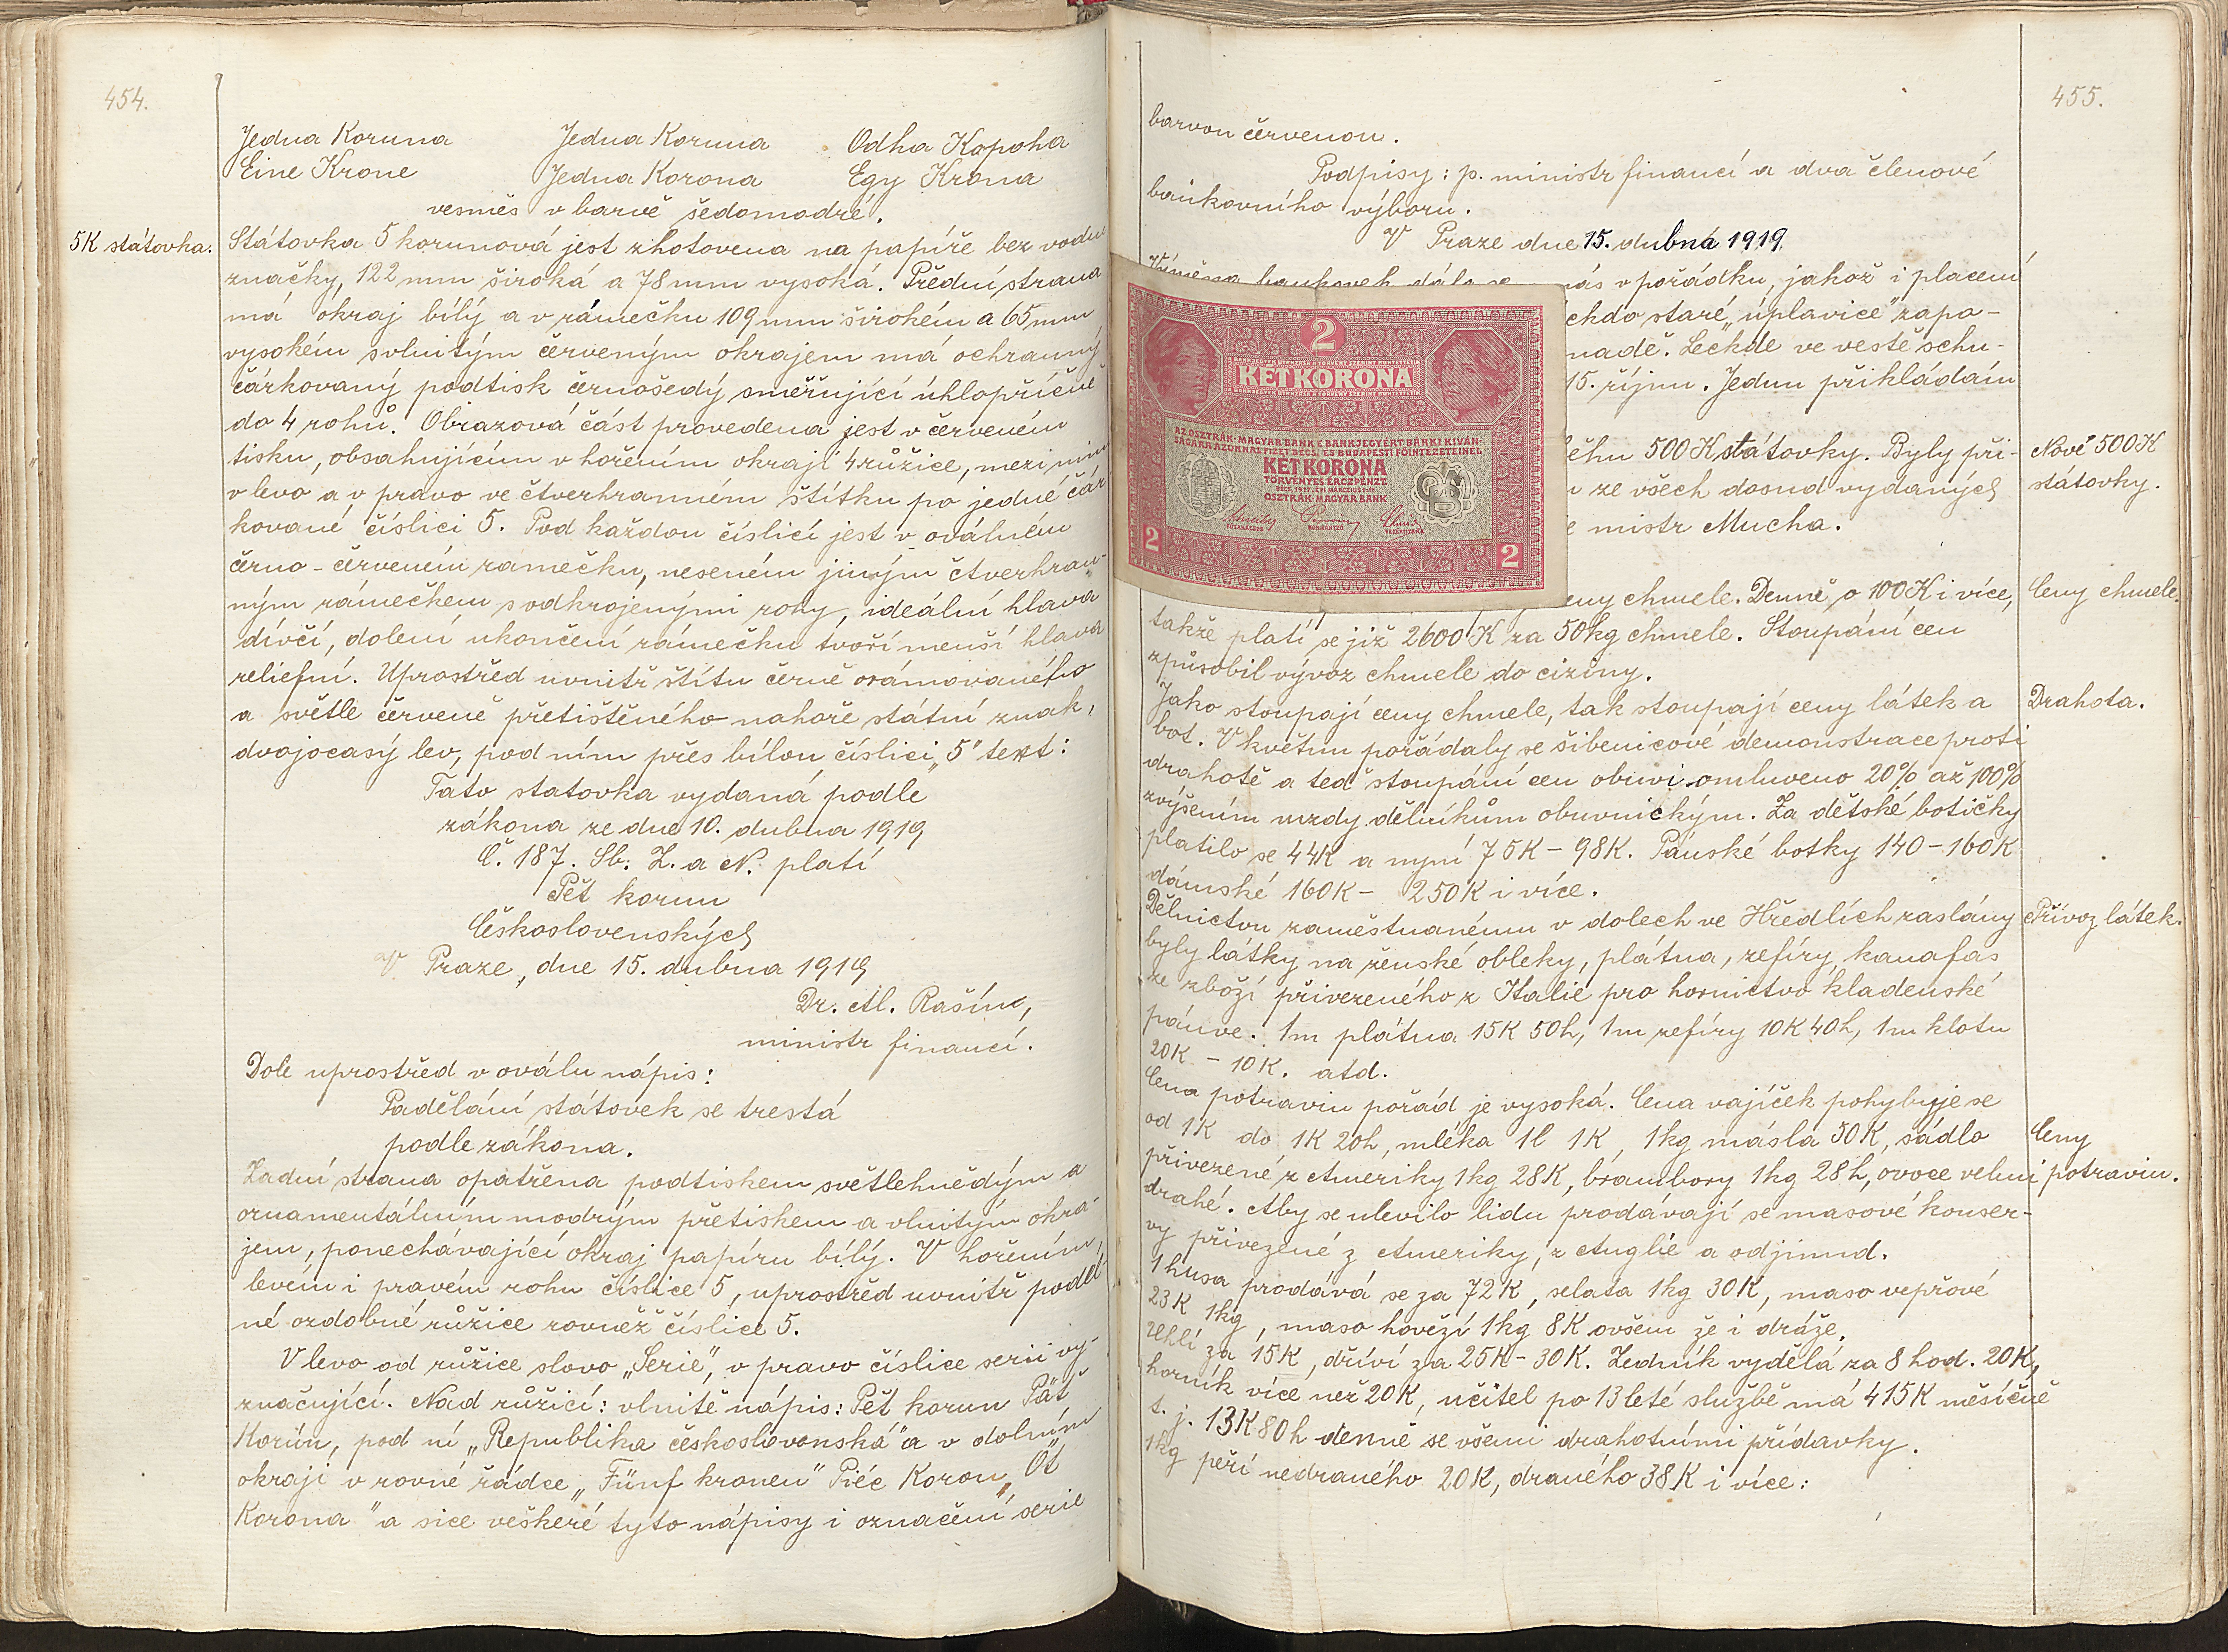 454.
Jedna Koruna Jedna Koruna Odha Kopoha
Eine Krone Jedna Korona Egy Krona
vesměs v barvě šedomodré.
5K státovka.
Státovka 5 korunová jest zhotovena na papíře bez vodn.
značky, 122 mm široká a 78 mm vysoká. Přední strana
má okraj bílý a v rámečku 109 mm širokém a 65 mm
vysokém s vlnitým červeným okrajem má ochranný
čárkovaný podtisk černošedý směřující úhlopříčně
do 4 rohů. Obrazová část provedena jest v červeném
tisku, obsahujícím v hořením okraji 4 růžice, mezi nim
v levo a v pravo ve čtverhranném štítku po jedné čár
kované číslici 5. Pod každou číslicí jest v oválném
černo-červeném rámečku, neseném jiným čtverhran-
ným rámečkem s odkrojenými rohy, ideální hlava
dívčí, dolení ukončení rámečku tvoří menší hlava
reliefní. Uprostřed uvnitř štítu černě orámovaného
a světle červeně přetištěného nahoře státní znak,
dvojocasý lev, pod ním přes bílou číslici „5" text:
Tato statovka vydaná podle
zákona ze dne 10. dubna 1919
Č. 187. Sb. Z. a N. platí
Pět korun
Československých
V Praze, dne 15. dubna 1919
Dr. Al. Rašín,
ministr financí.
Dole uprostřed v oválu nápis:
Padělání státovek se trestá
podle zákona.
Zadní strana opatřena podtiskem světlehnědým a
ornamentálním modrým přetiskem a vlnitým okra-
jem, ponechávající okraj papíru bílý. V hořením,
levém i pravém rohu číslice 5, uprostřed uvnitř podlé
né ozdobné růžice rovněž číslice 5.
V levo od růžice slovo „Serie", v pravo číslice serii vy-
značující. Nad růžicí: vlnitě nápis: Pět korun Päť
Korún, pod ní „Republika československá" a v dolním
okraji v rovné řádce „Fünf kronen" Pięć Koron „Öt
Korona" a sice veškeré tyto nápisy i označení serie
455.
barvou červenou.
Podpisy: p. ministr financí a dva členové
bankovního výboru.
V Praze dne 15. dubna 1919.
Výměna bankovek dála se nás v pořádku, jakož i placení
ckdo staré „úplavice" zapo-
nadě. Leckde ve vestě schu-
15. říjnu. Jednu přikládám
2
KÉT KORONA
AZ OSZTRÁK-MAGYAR BANK E BANKJEGYÉRT BÁRKI KIVÁN-
SÁGÁRA AZONNAL FIZET BÉCSI ÉS BUDAPESTI FŐINTÉZETEINÉL
KÉT KORONA
TÖRVÉNYES ÉRCZPÉNZT.
BÉCS, 1917. ÉVI MÁRCZIUS 1-ÉN
OSZTRÁK-MAGYAR BANK
FŐTANÁCSOS KORMÁNYZÓ VEZÉRTITKÁR
2 2
ěhu 500 K státovky. Byly při-
Nové 500 K
ze všech dosud vydaných
státovky.
mistr Mucha.
eny chmele. Denně o 100 K i více,
Ceny chmele.
takže platí se již 2600 K za 50 kg chmele. Stoupání cen
způsobil vývoz chmele do ciziny.
Jako stoupají ceny chmele, tak stoupají ceny látek a
Drahota.
bot. V květnu pořádaly se šibenicové demonstrace proti
drahotě a teď stoupání cen obuvi omluveno 20% až 100%
zvýšením mzdy dělníkům obuvnickým. Za dětské botičky
platilo se 44K a nyní 75K – 98K. Pánské botky 140 – 160K
dámské 160K – 250K i více.
Dělnictvu zaměstnanému v dolech ve Hředlích zaslány
Přívoz látek.
byly látky na ženské obleky, plátna, zefíry, kanafas
ze zboží přivezeného z Italie pro hornictvo kladenské
pánve. 1m plátna 15K 50h, 1m zefíry 10K 40h, 1m klotu
20K – 10K. atd.
Cena potravin pořád je vysoká. Cena vajíček pohybuje se
od 1K do 1K 20h, mléka 1l 1K 1kg másla 50K, sádlo
Ceny
přivezené z Ameriky 1kg 28K, brambory 1kg 28h, ovoce velmi
potravin.
drahé. Aby se ulevilo lidu prodávají se masové konser-
vy přivezené z Ameriky, z Anglie a odjinud.
1 husa prodává se za 72K, selata 1kg 30K, maso vepřové
23K 1kg, maso hovězí 1kg 8K ovšem že i dráže.
Uhlí za 15K, dříví za 25K – 30K. Zedník vydělá za 8 hod. 20K,
horník více než 20K, učitel po 13 leté službě má 415K měsíčně
t. j. 13K 80h denně se všemi drahotními přídavky.
1kg peří nedraného 20K, draného 38K i více: